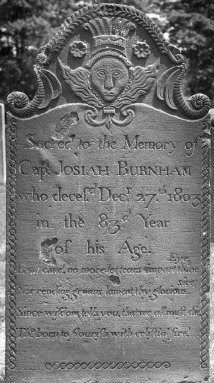 Sacred to the Memory of
Cap. JOSIAH BURNHAM
who deces.d Dec.r 27.th 1803
in the 83.d Year
of his Age.
Eyre
care, no more
Nor rending groans
Since wisdom tells you, that we all must die
born to flourish with celestial fire